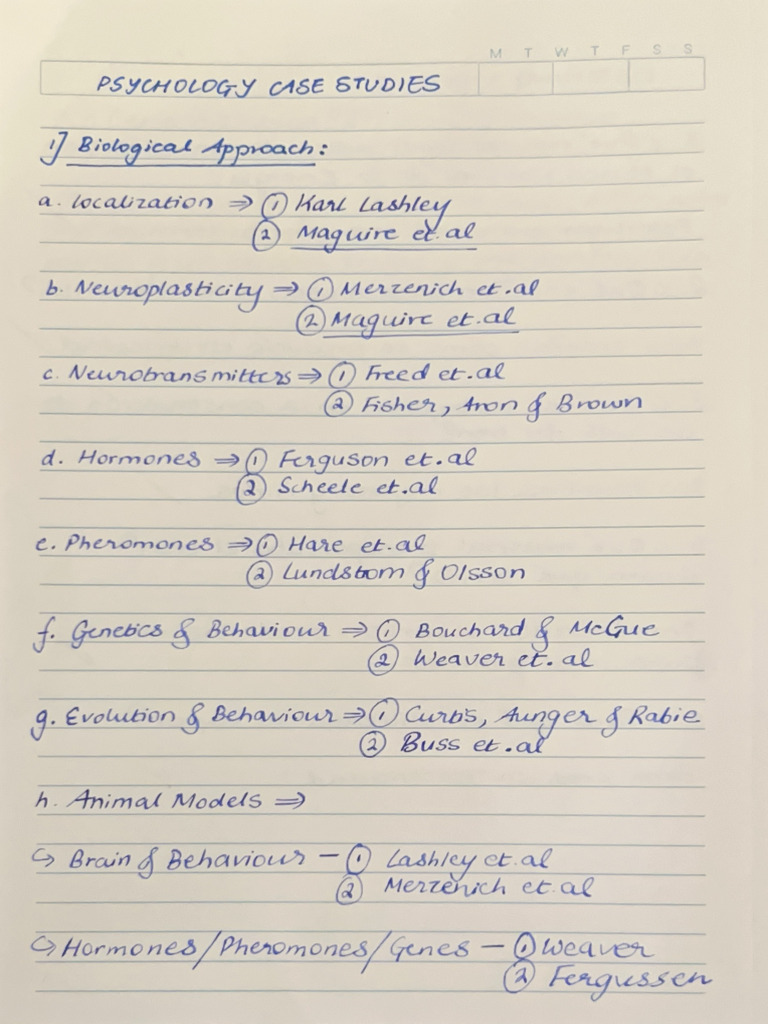 M T W T F S S
PSYCHOLOGY CASE STUDIES
1] Biological Approach:
a. Localization ⇒ ① Karl Lashley
② Maguire et.al
b. Neuroplasticity ⇒ ① Merzenich et.al
② Maguire et.al
c. Neurotransmitters ⇒ ① Freed et.al
② Fisher, Aron & Brown
d. Hormones ⇒ ① Ferguson et.al
② Scheele et.al
e. Pheromones ⇒ ① Hare et.al
② Lundstrom & Olsson
f. Genetics & Behaviour ⇒ ① Bouchard & McGue
② Weaver et. al
g. Evolution & Behaviour ⇒ ① Curtis, Aunger & Rabie
② Buss et.al
h. Animal Models ⇒
↪ Brain & Behaviour – ① Lashley et.al
② Merzenich et.al
↪ Hormones/Pheromones/Genes – ① Weaver
② Fergussen